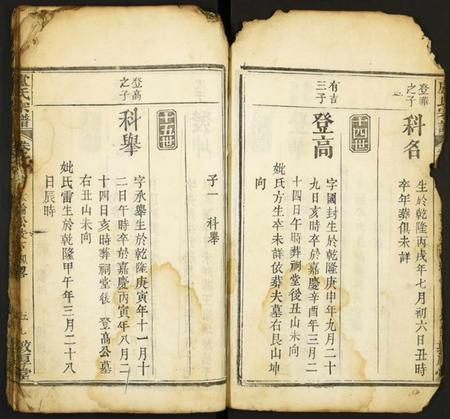 登華
之子
科名
生於乾隆丙戌年七月初六日丑時
卒年葬俱未詳
十四世
有吉
三子
登高
字國封生於乾隆庚申年九月二十
九日亥時卒於嘉慶辛酉年三月二
十四日午時葬祠堂後丑山未向
妣氏方生卒未詳依葬夫墓右艮山坤
向
子一 科舉
十五世
登高
之子
科舉
字承舉生於乾隆庚寅年十一月十
二日午時卒於嘉慶丙寅年八月二
十四日亥時葬祠堂後 登高公墓
右丑山未向
妣氏雷生於乾隆甲午年三月二十八
日辰時
氏宗譜
敦厚堂